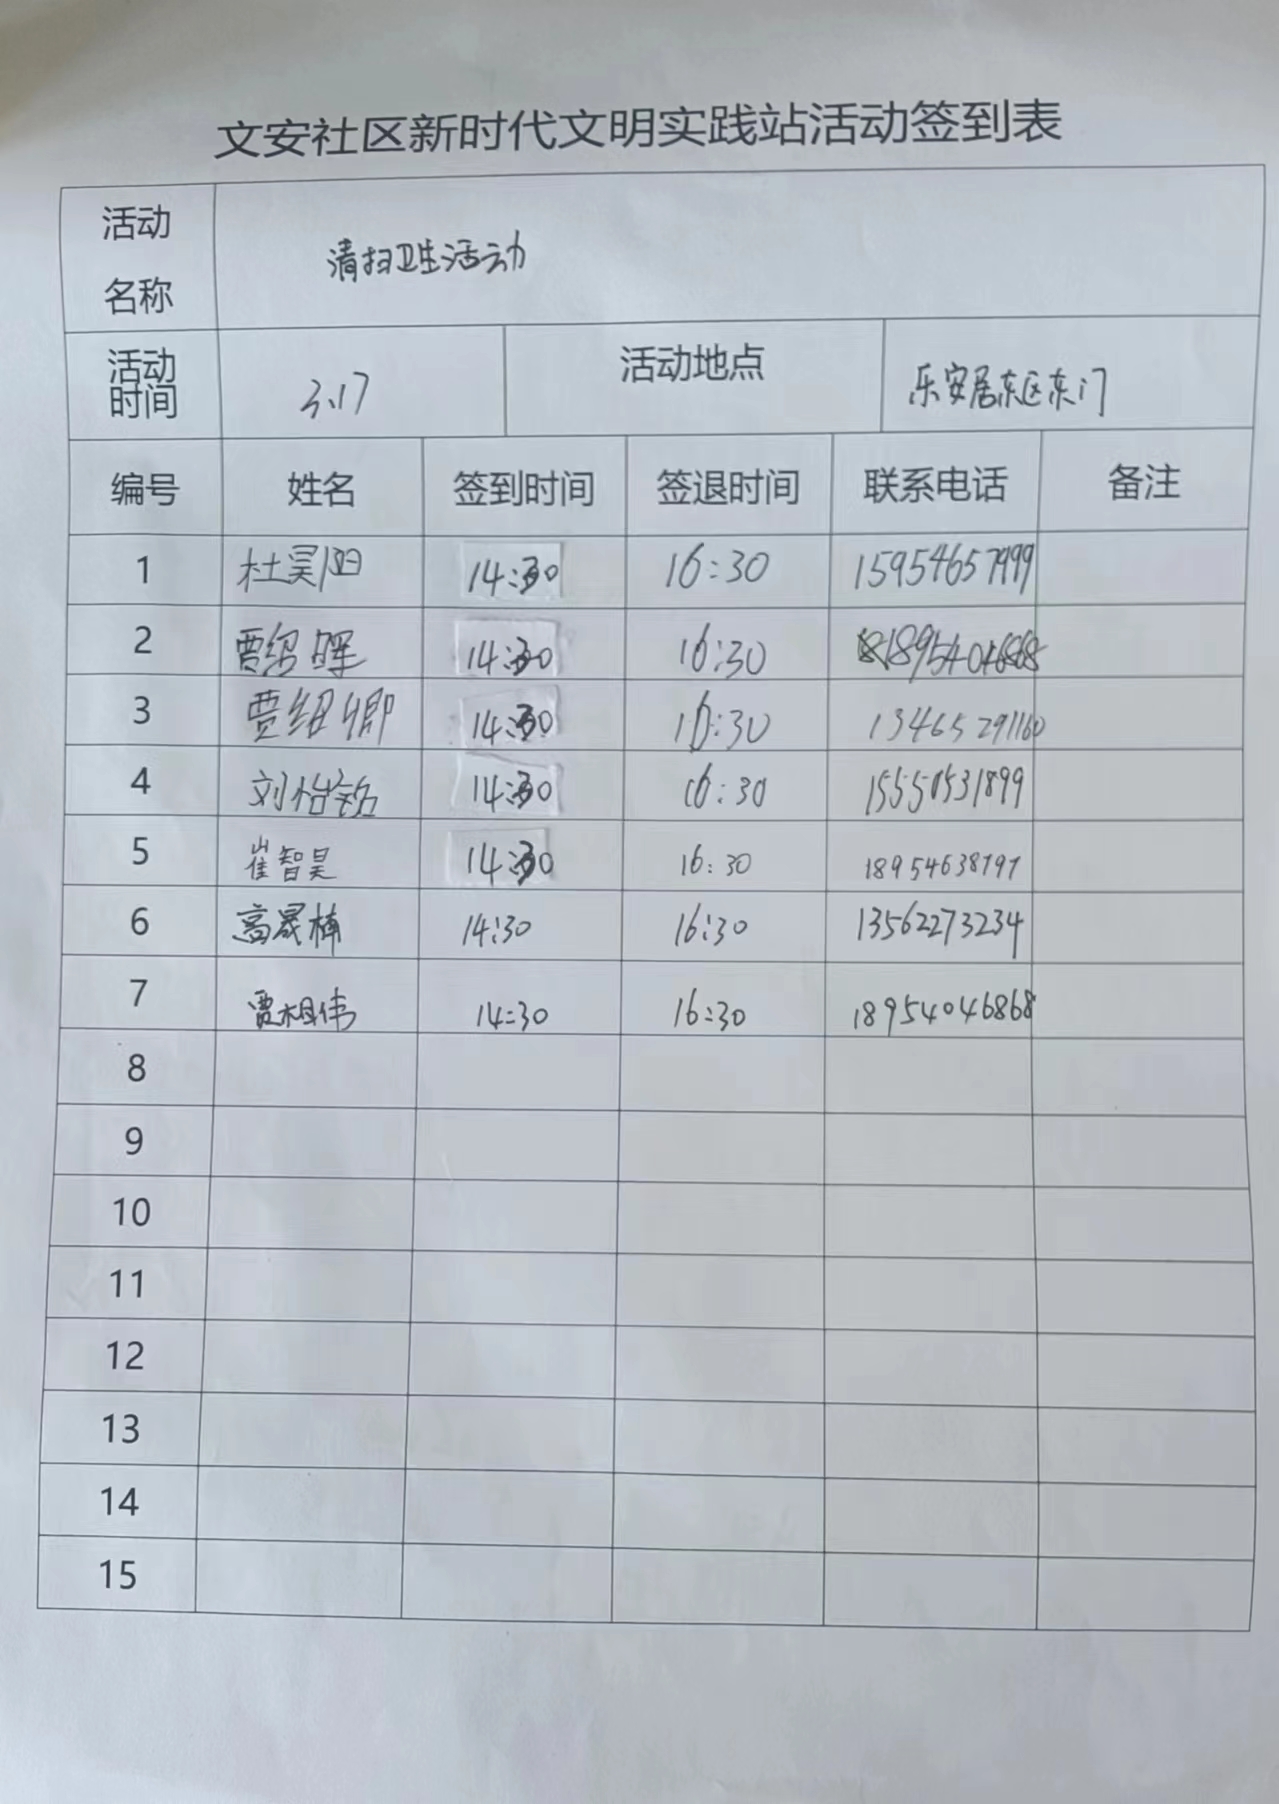 文安社区新时代文明实践站活动签到表
活动名称 清扫卫生活动
活动时间 3.17 活动地点 乐安居东区东门
编号 姓名 签到时间 签退时间 联系电话 备注
1 杜昊阳 14:30 16:30 15954657999
2 贾绍晖 14:30 16:30 18954046868
3 贾绍卿 14:30 16:30 13465291160
4 刘怡铭 14:30 16:30 15550531899
5 崔智昊 14:30 16:30 18954638797
6 高晟楠 14:30 16:30 13562273234
7 贾相伟 14:30 16:30 18954046868
8
9
10
11
12
13
14
15